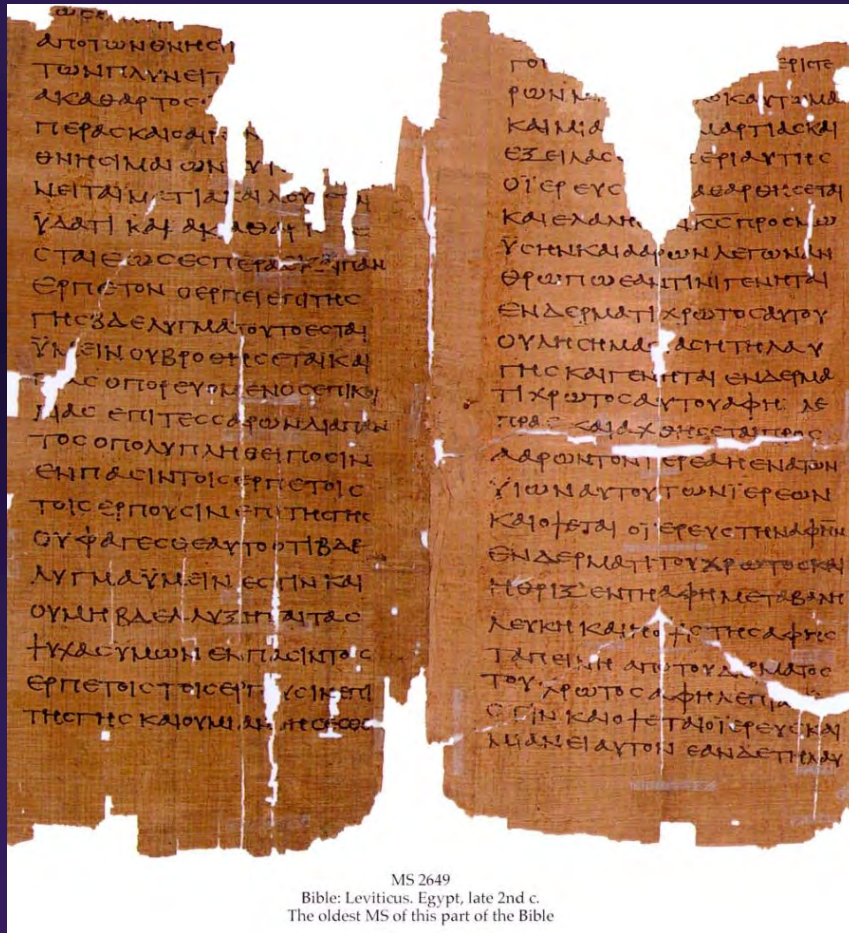 ΑΠΟΤΩΝΘΝΗCΙ
ΤΩΝΠΛΥΝΕΙΤ
ΑΚΑΘΑΡΤΟC
ΠΕΡΑCΚΑΙΟΑΙΡ
ΘΝΗCΙΜΑΙΩΝ
ΝΕΙΤΑΙΜΑΤΙΑΚΑΙΛΟΥ
ΫΔΑΤΙ ΚΑΙ ΑΚΑΘΑΡΤ
CΤΑΙΕΩCΕCΠΕΡΑC ΠΑΝ
ΕΡΠΕΤΟΝ ΟΕΡΠΕΙΕΠΙΤΗC
ΓΗCΒΔΕΛΥΓΜΑΤΟΥΤΟΕCΤΑΙ
ΫΜΕΙΝΟΥΒΡΟΘΗCΕΤΑΙΚΑΙ
ΟΠΟΡΕΥΟΜΕΝΟCΕΠΙΚΟΙ
ΛΙΑC ΕΠΙΤΕCCΑΡΩΝΔΙΑΠΑΝ
ΤΟCΟΠΟΛΥΠΛΗΘΕΙΠΟCΙΝ
ΕΝΠΑCΙΝΤΟΙCΕΡΠΕΤΟΙC
ΤΟΙCΕΡΠΟΥCΙΝΕΠΙΤΗCΓΗC
ΟΥΦΑΓΕCΘΕΑΥΤΟΟΤΙΒΔΕ
ΛΥΓΜΑΫΜΕΙΝ ΕCΤΙΝ ΚΑΙ
ΟΥΜΗ ΒΔΕΛΛΥΞΗΤΑΙΤΑC
ΨΥΧΑCΫΜΩΝ ΕΝΠΑCΙΝΤΟΙC
ΕΡΠΕΤΟΙCΤΟΙCΕΡΠΟΥCΙΝΕΠΙ
ΤΗCΓΗC ΚΑΙΟΥΜΙΑΝΘΗCΕCΘΕ
ΓΟ ΕΡΙCΤΕ
ΡΩΝ ΚΑΥΤΩΜΑ
ΚΑΙΜΙΑ ΜΑΡΤΙΑCΚΑΙ
ΕΞΕΙΛΑC ΕΡΙΑΥΤΗC
ΟΪΕΡΕΥC ΑΘΑΡΘΗCΕΤΑΙ
ΚΑΙΕΛΑΛΗ ΚC ΠΡΟCΜΩ
ΫCΗΝΚΑΙΑΑΡΩΝΛΕΓΩΝΑΝ
ΘΡΩΠΩΕΑΝΤΙΝΙΓΕΝΗΤΑΙ
ΕΝΔΕΡΜΑΤΙΧΡΩΤΟCΑΥΤΟΥ
ΟΥΛΗCΗΜΑ ΑCΗΤΗΛΑΥ
ΓΗC ΚΑΙΓΕΝΗΤΑΙ ΕΝΔΕΡΜΑ
ΤΙΧΡΩΤΟCΑΥΤΟΥΑΦΗ ΛΕ
ΠΡΑC ΚΑΙΑΧΘΗCΕΤΑΙΠΡΟC
ΑΑΡΩΝΤΟΝΙΕΡΕΑΗΕΝΑΤΩΝ
ΫΙΩΝΑΥΤΟΥΤΩΝΪΕΡΕΩΝ
ΚΑΙΟΨΕΤΑΙ ΟΪΕΡΕΥCΤΗΝΑΦΗΝ
ΕΝΔΕΡΜΑΤΙΤΟΥΧΡΩΤΟCΚΑΙ
ΗΘΡΙΞ ΕΝΤΗΑΦΗΜΕΤΑΒΑΛΗ
ΛΕΥΚΗ ΚΑΙΗΟΨΙCΤΗCΑΦΗC
ΤΑΠΕΙΝΗ ΑΠΟΤΟΥΔΕΡΜΑΤΟC
ΤΟΥΧΡΩΤΟCΑΦΗΛΕΠΡΑ
CΤΙΝ ΚΑΙΟΨΕΤΑΙΟΪΕΡΕΥCΚΑΙ
ΜΙΑΝΕΙΑΥΤΟΝ ΕΑΝΔΕΤΗΛΑΥ
MS 2649
Bible: Leviticus. Egypt, late 2nd c.
The oldest MS of this part of the Bible